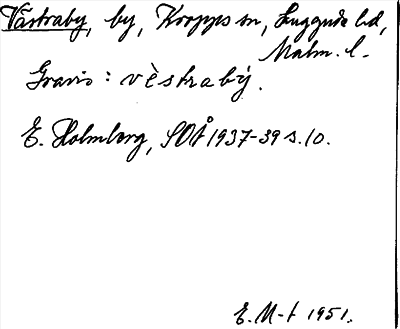 Västraby, by, Kropps sn, Luggude hd,
Malm. l.
Gravis: vèstrabý.
E. Holmberg, SOÅ 1937-39 s. 10.
E. M-t 1951.